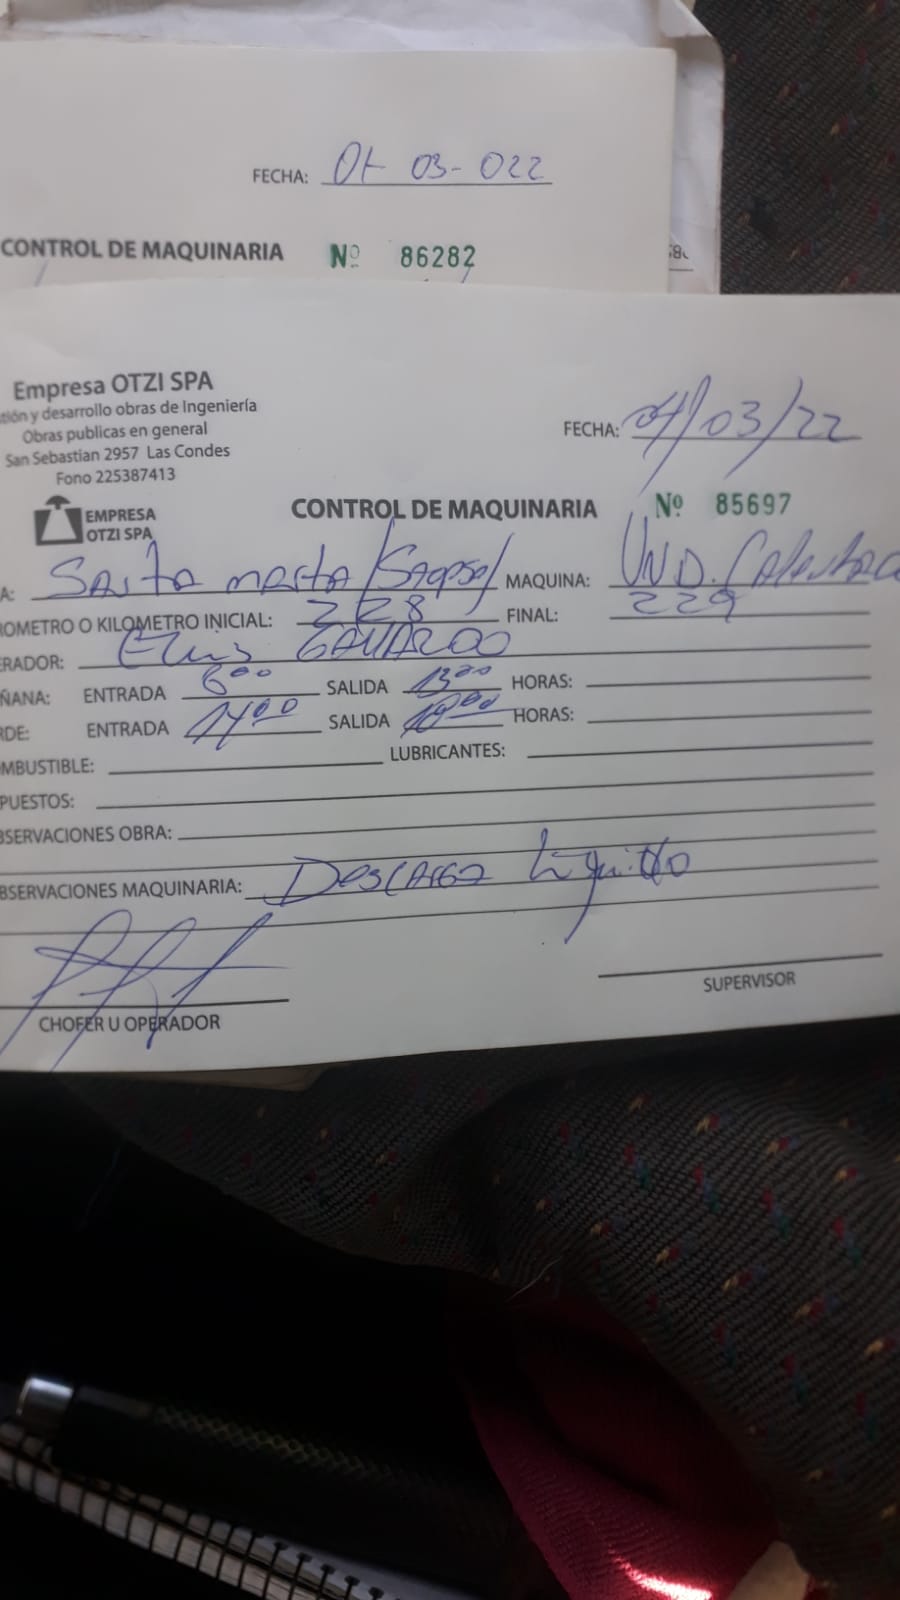 FECHA: 01 03-022
CONTROL DE MAQUINARIA Nº 86282
Empresa OTZI SPA
tión y desarrollo obras de Ingeniería
Obras publicas en general
San Sebastian 2957 Las Condes
Fono 225387413
FECHA: 04/03/22
EMPRESA
OTZI SPA
CONTROL DE MAQUINARIA Nº 85697
A: Santa marta MAQUINA: UND.
OROMETRO O KILOMETRO INICIAL: 228 FINAL: 229
ERADOR: GALLARDO
ÑANA: ENTRADA 8⁰⁰ SALIDA 13⁰⁰ HORAS:
RDE: ENTRADA 14⁰⁰ SALIDA 18⁰⁰ HORAS:
MBUSTIBLE: LUBRICANTES:
PUESTOS:
BSERVACIONES OBRA:
BSERVACIONES MAQUINARIA: Descarga liquido
CHOFER U OPERADOR
SUPERVISOR